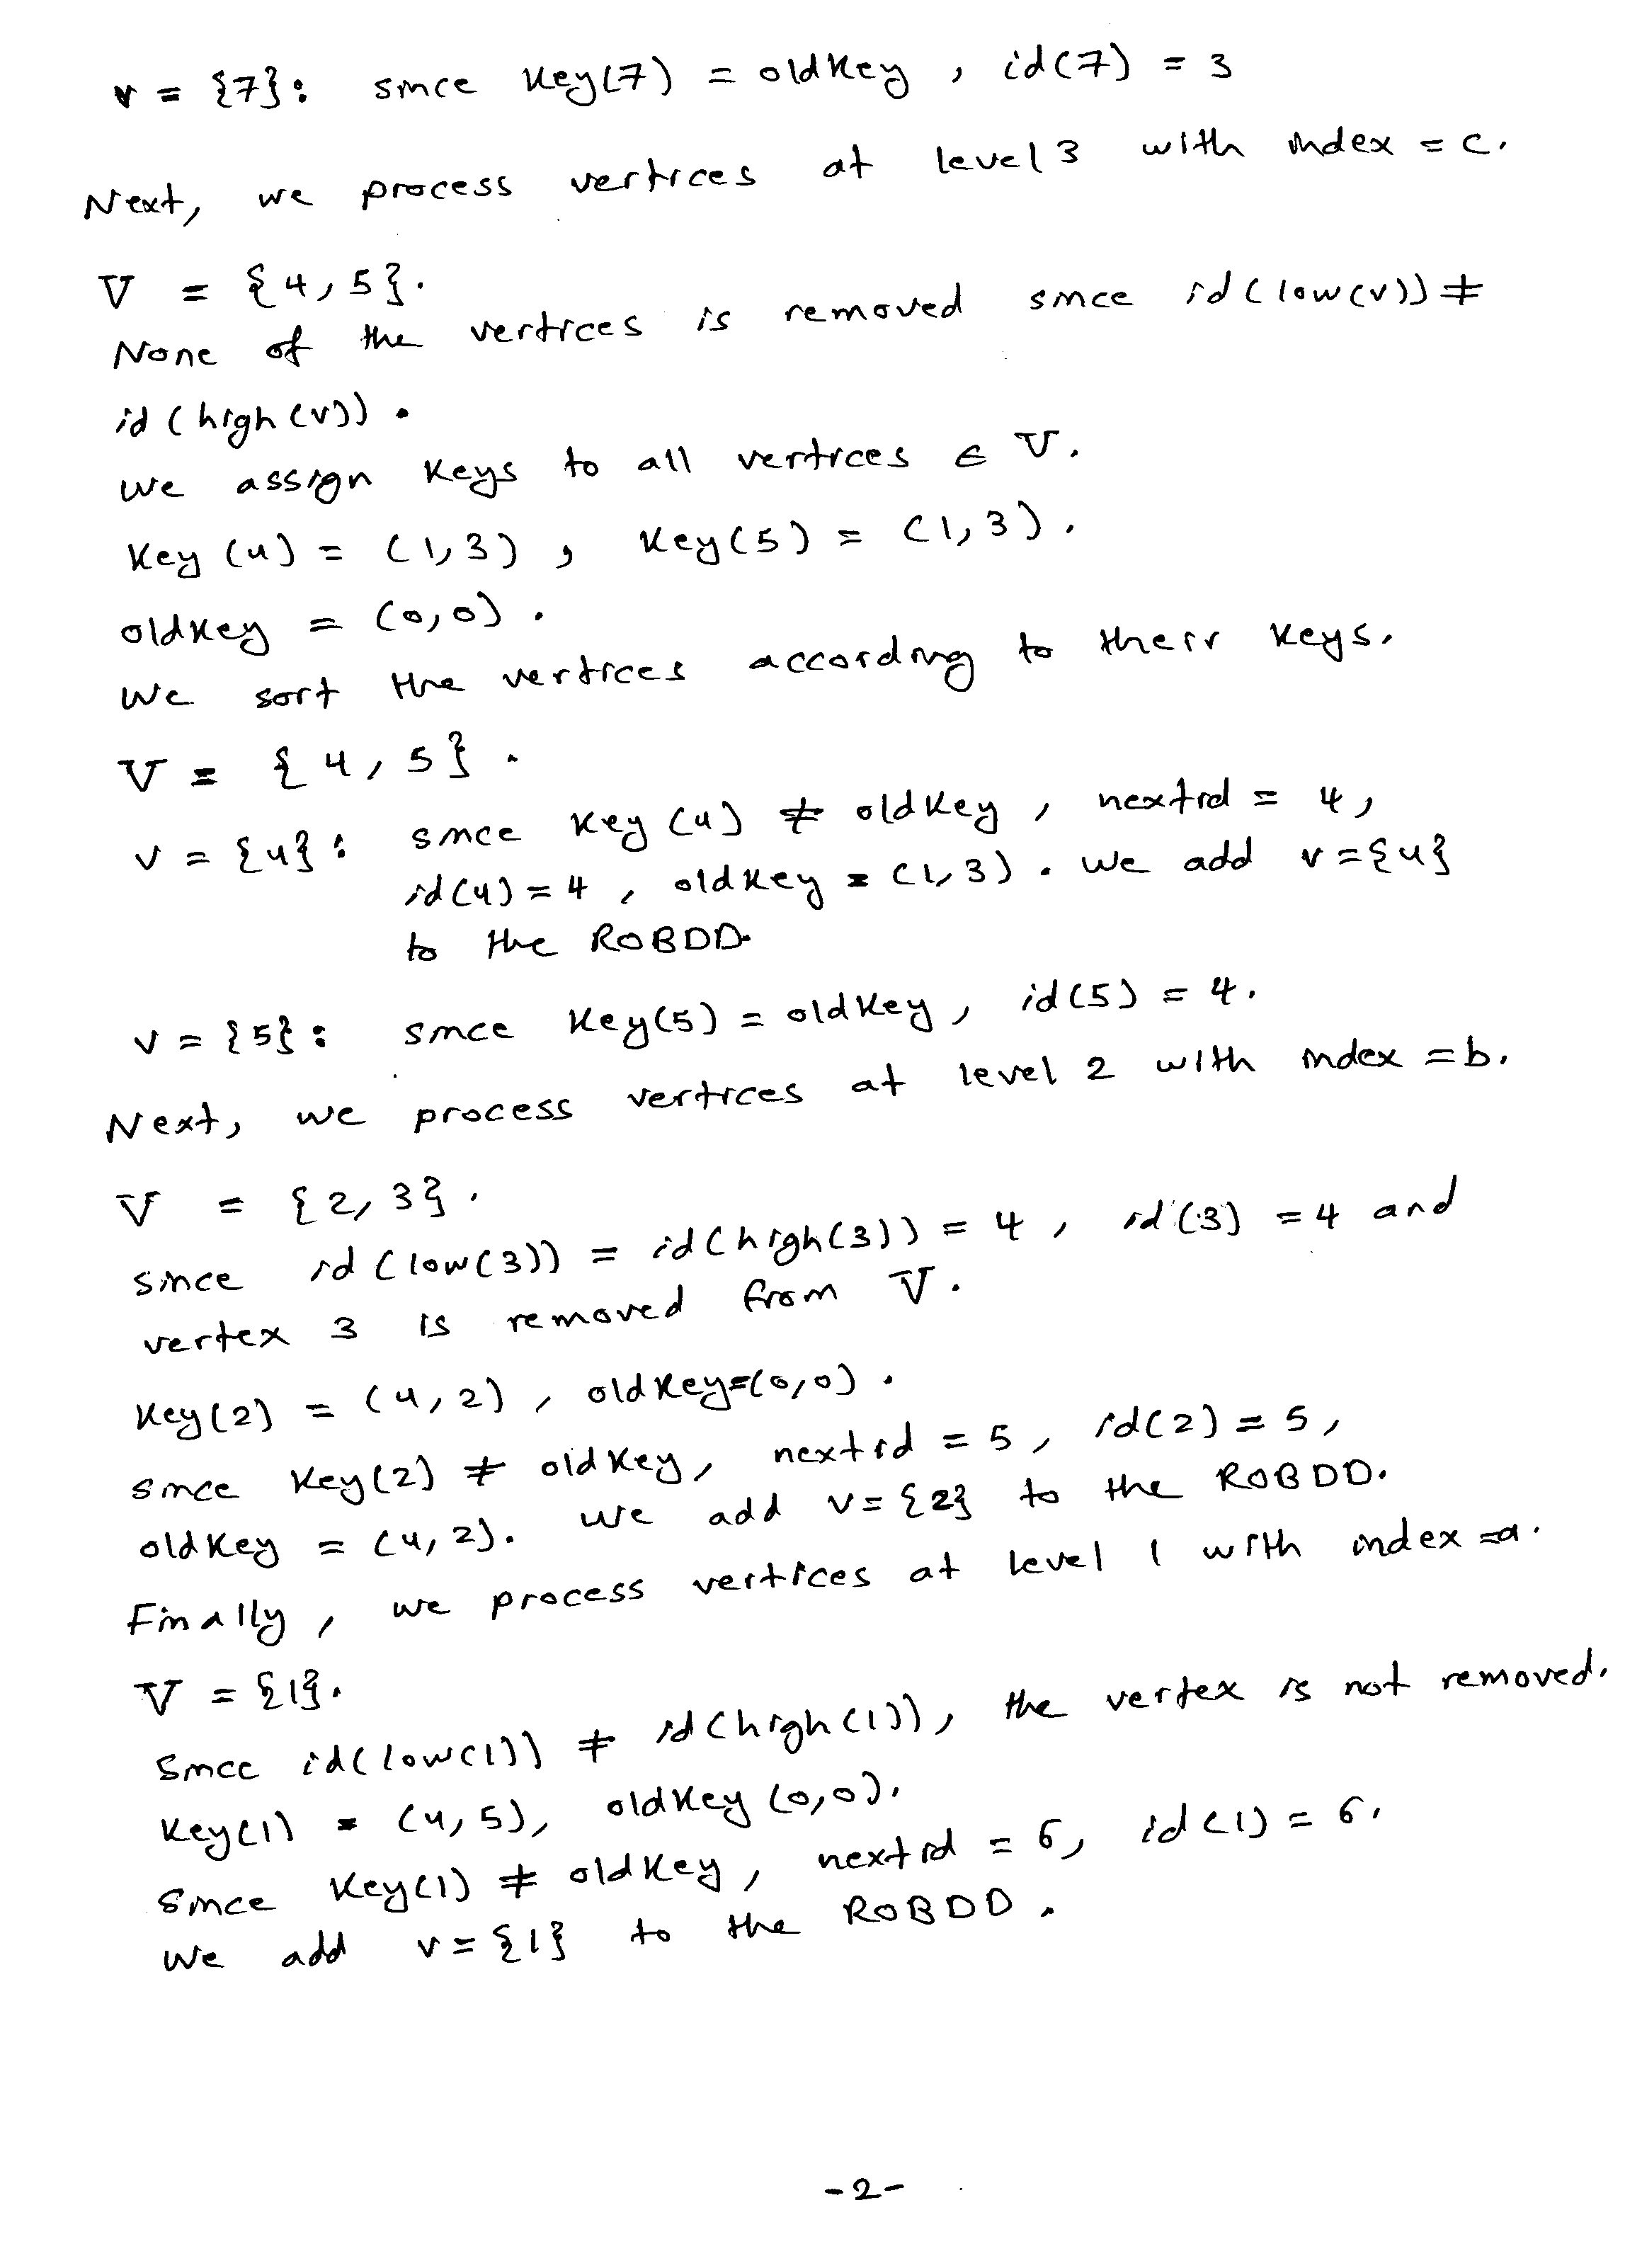 v = {7}: since Key(7) = oldKey, id(7) = 3
Next, we process vertices at level 3 with index = c.
V = {4,5}.
None of the vertices is removed since id(low(v)) ≠
id(high(v)).
We assign Keys to all vertices ∈ V.
Key(4) = (1,3), Key(5) = (1,3).
oldKey = (0,0).
We sort the vertices according to their keys.
V = {4,5}.
v = {4}: since Key(4) ≠ oldKey, nextid = 4,
id(4) = 4, oldKey = (1,3). We add v={4}
to the ROBDD.
v = {5}: since Key(5) = oldKey, id(5) = 4.
Next, we process vertices at level 2 with index = b.
V = {2,3}.
Since id(low(3)) = id(high(3)) = 4, id(3) = 4 and
vertex 3 is removed from V.
Key(2) = (4,2), oldKey=(0,0).
Since Key(2) ≠ oldKey, nextid = 5, id(2) = 5,
oldKey = (4,2). We add v={2} to the ROBDD.
Finally, we process vertices at level 1 with index =a.
V = {1}.
Since id(low(1)) ≠ id(high(1)), the vertex is not removed.
Key(1) = (4,5), oldKey (0,0).
Since Key(1) ≠ oldKey, nextid = 6, id(1) = 6.
We add v={1} to the ROBDD.
-2-